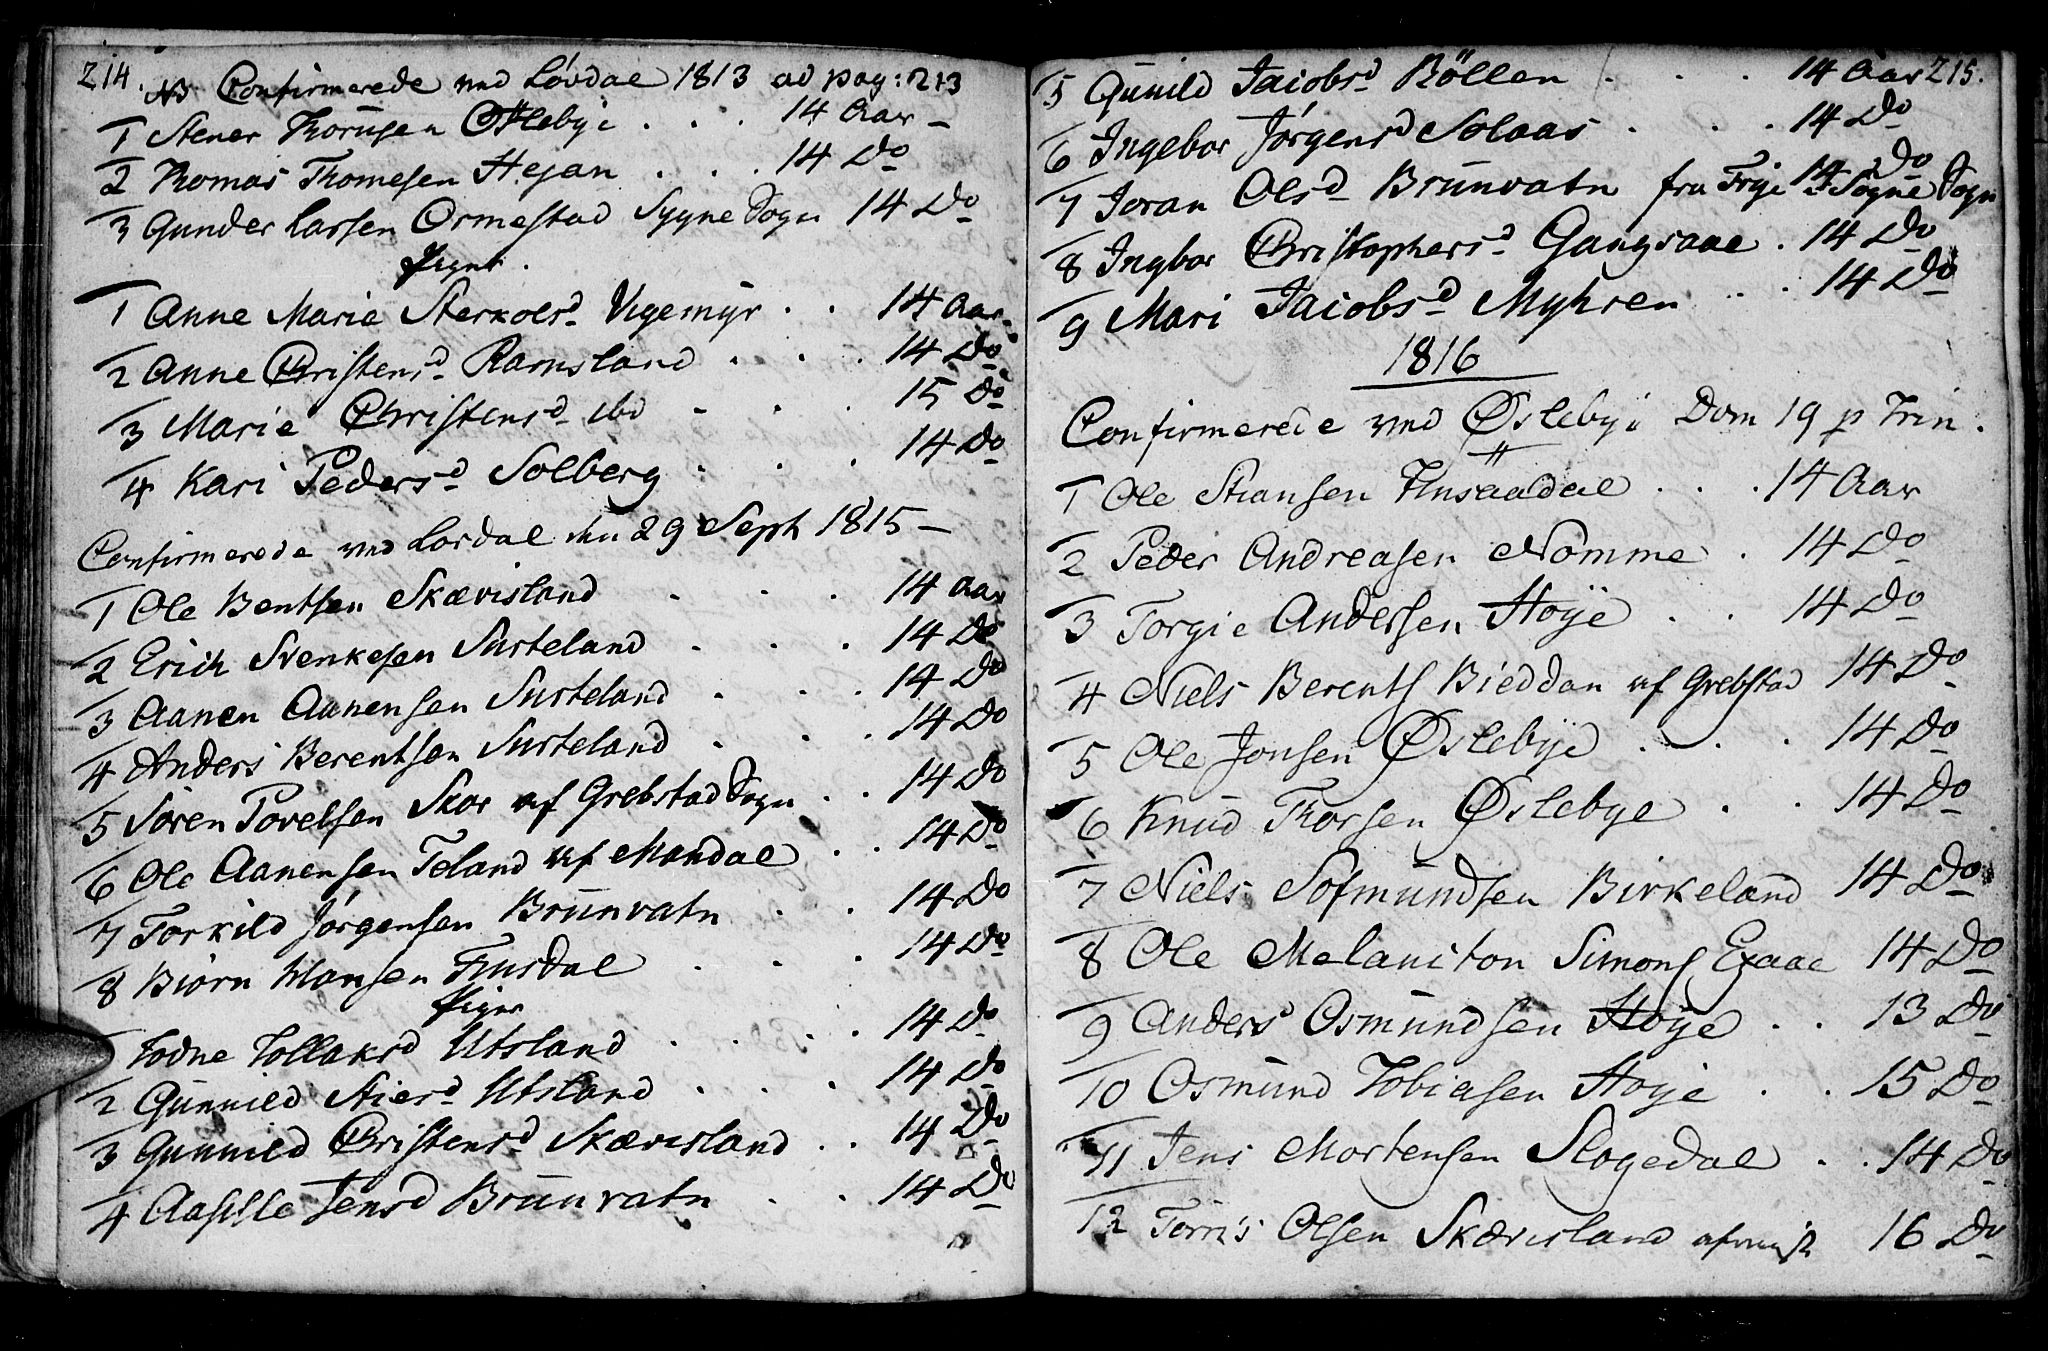 214.
NB Confirmerede ved Løvdal 1813 ad pag: 213
1 Stener Thorusen Øslebye . . . 14 Aar
2 Thomas Thomesen Hejan . . . 14 Do
3 Gunder Larsen Ormestad Sygne Sogn 14 Do
Piger.
1 Anne Marie Sterkolsd Vigemyr . . 14 Aar
2 Anne Christensd Ramsland . . . 14 Do
3 Marie Christensd ibd . . . 15 Do
4 Kari Pedersd Solberg . . . 14 Do
Confirmerede ved Lovdal den 29 Sept 1815
1 Ole Bentsen Skævisland . . . 14 Aar
2 Erich Svenkesen Susteland . . . 14 Do
3 Aanen Aanensen Susteland . . . 14 Do
4 Anders Berentsen Susteland . . . 14 Do
5 Søren Povelsen Skor af Grebstad Sogn . . 14 Do
6 Ole Aanensen Teland af Mandal . . 14 Do
7 Torkild Jørgensen Brunvatn . . 14 Do
8 Biørn Hansen Fusdal . . . 14 Do
Piger
Todne Tollaksd Utsland . . . . 14 Do
2 Gunnild Stiersd Utsland . . . 14 Do
3 Gunnild Christensd Skævisland . . 14 Do
4 Aasille Jensd Brunvatn . . 14 Do
215.
5 Gunild Jacobsd Bøllen . . . 14 Aar
6 Ingebor Jørgensd Solaas . . . 14 Do
7 Joran Olsd Brunvatn fra Sogne Sogn 14 Do
8 Ingbor Christophersd Gangsaae . 14 Do
9 Mari Jacobsd Myhren . . 14 Do
1816
Confirmerede ved Øslebye Dom 19 p Trin.
1 Ole Stiansen Fusaadal . . . 14 Aar
2 Peder Andreasen Nømme . 14 Do
3 Torgie Andersen Høye . . 14 Do
4 Niels Berents Bieddan af Grebstad 14 Do
5 Ole Jonsen Øslebye . . . 14 Do
6 Knud Thorsen Øslebye . . 14 Do
7 Niels Sosmundsen Birkeland 14 Do
8 Ole Melaniton Simons Exaae 14 Do
9 Anders Osmundsen Høye . . 13 Do
10 Osmund Tobiasen Høye . . 15 Do
11 Jens Mortensen Slogedal . . 14 Do
12 Torris Olsen Skævisland 16 Do